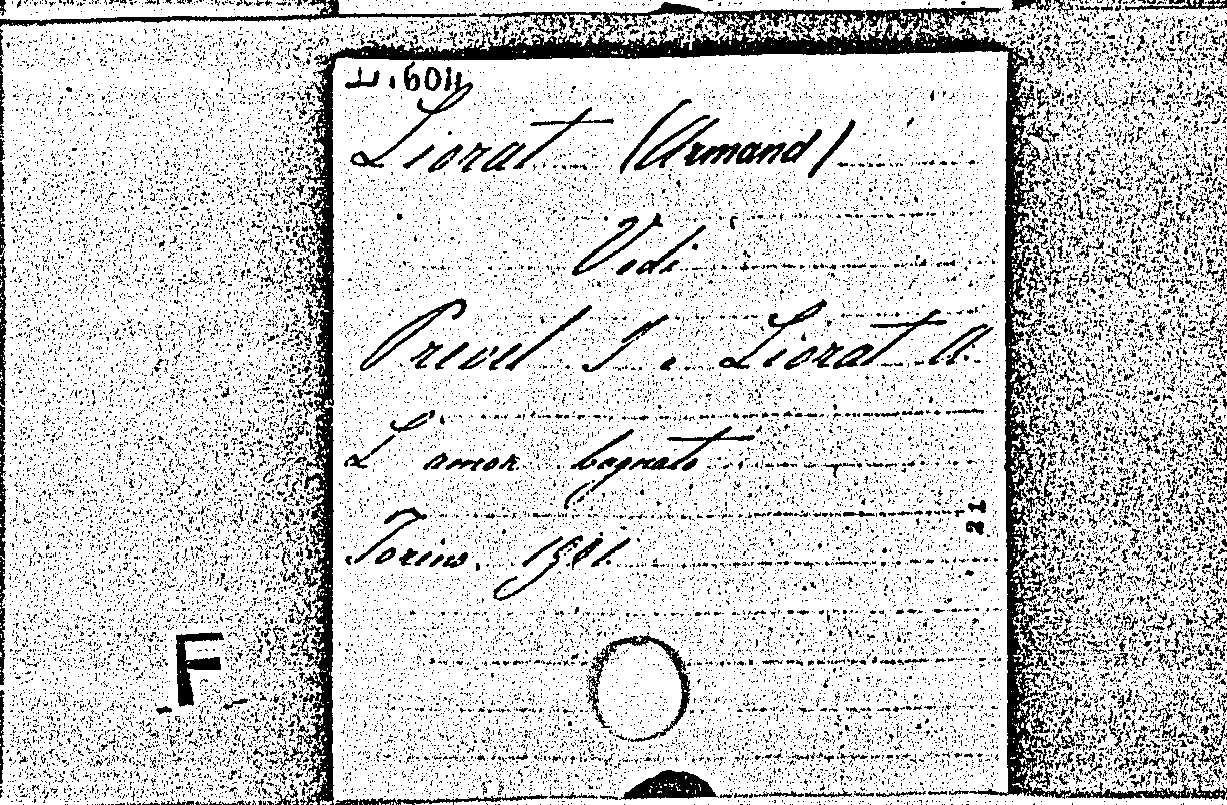 L.604
Liorat (Armand)
Vedi
Prevel J. e. Liorat A.
L' amor bagnato
Torino, 1901.
21
F